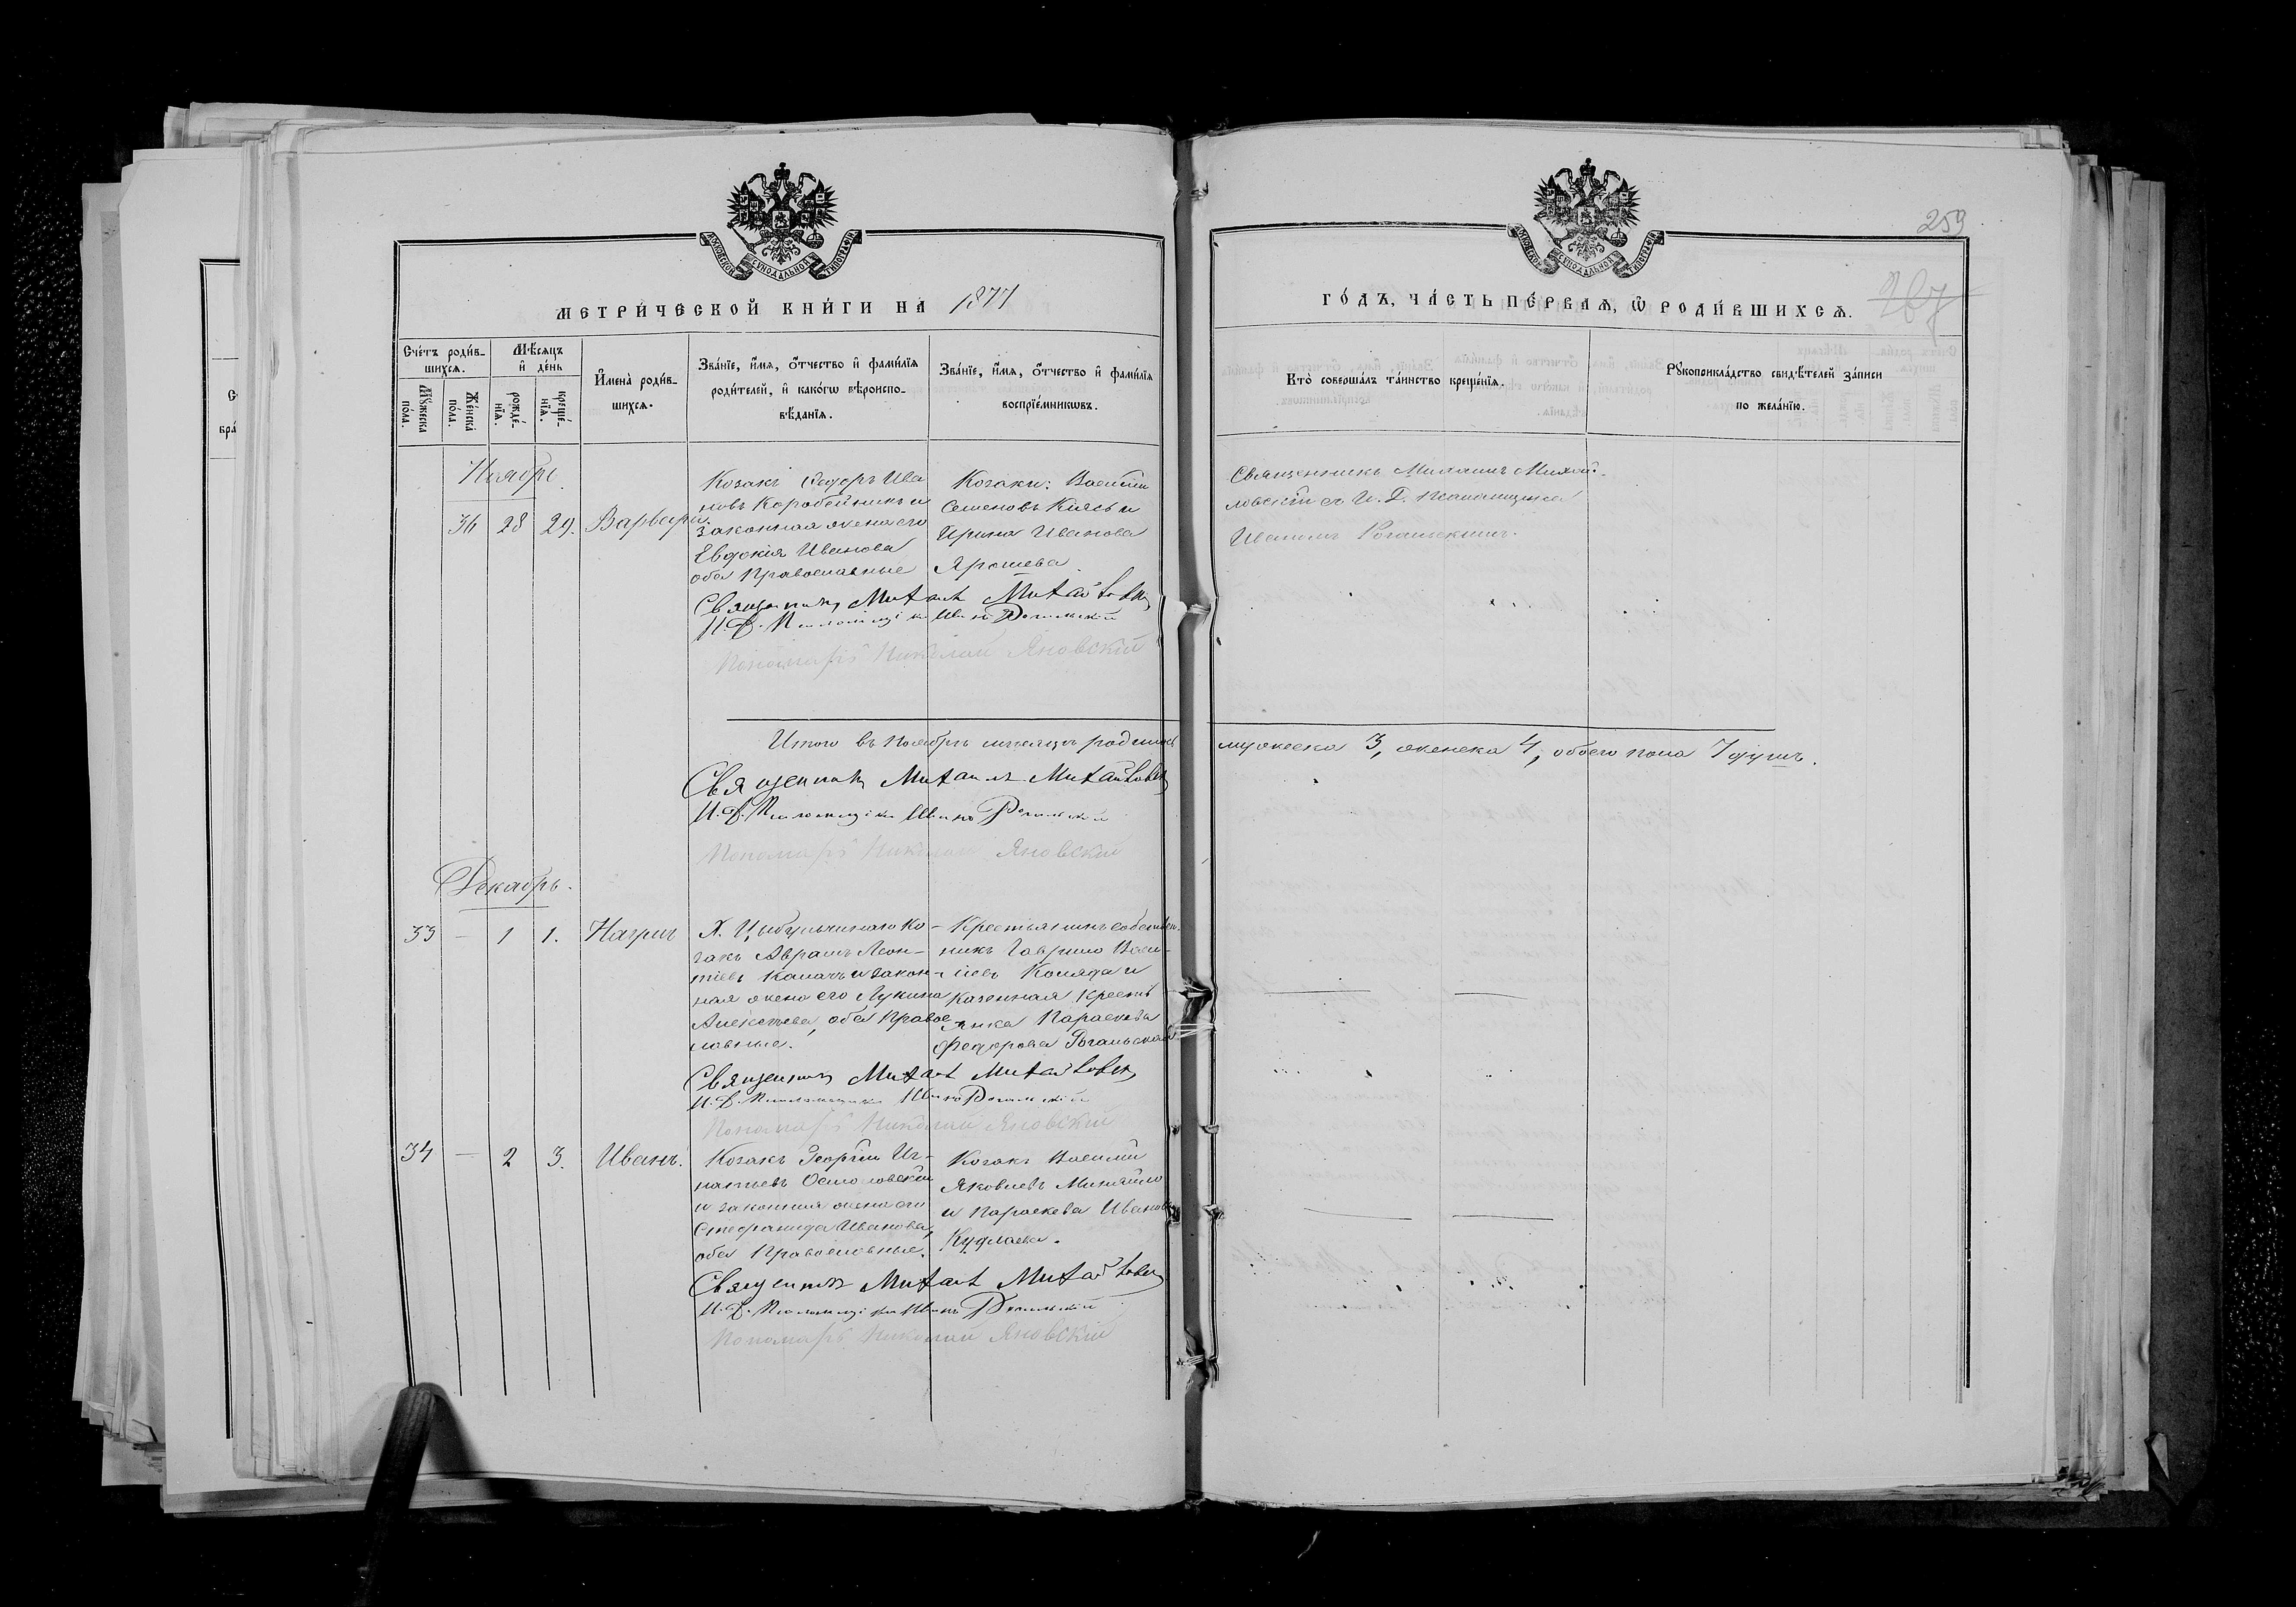 259
МОСКОВСКОЙ СѴНОДАЛЬНОЙ ТИПОГРАФІИ
МОСКОВСКОЙ СѴНОДАЛЬНОЙ ТИПОГРАФІИ
МЕТРИ́ЧЕСКОЙ КНИ́ГИ НА 1877
ГО́ДЪ, ЧА́СТЬ ПЕ́РВАѦ, Ѿ РОДИ́ВШИХСѦ.
Сче́тъ роди́в-
шихсѧ.
Мꙋ́жеска
по́ла.
Же́нска
по́ла.
Мѣ́сѧцъ
и҆ де́нь
рожде́-
нїѧ.
креще́-
нїѧ.
И҆мена̀ роди́в-
шихсѧ.
Зва́нїе, и҆́мѧ, ѻ҆́тчество и҆ фами́лїѧ
роди́телей, и҆ како́гѡ вѣроиспо-
вѣ́данїѧ.
Зва́нїе, и҆́мѧ, ѻ҆́тчество и҆ фами́лїѧ
воспрїе́мникѡвъ.
Кто̀ соверша́лъ та́инство креще́нїѧ.
Рꙋкоприкла́дство свидѣ́телей за́писи
по жела́нїю.
Ноябрь.
36 28 29. Варвара.
Козакъ Ѳедоръ Ива
новъ Коробейникъ и
законная жена его
Евдокія Иванова
оба Православные
Козаки: Василій
Семеновъ Киясь и
Ирина Иванова
Ярошева
Священникъ Михаилъ Михай-
ловскій съ И. Д. Псаломщика
Иваномъ Рогальскимъ.
Священникъ Михаилъ Михайловскій
И. Д. Псаломщика Иванъ Рогальскій
Пономарь Николай Яновскій
Итого въ Ноябрѣ мѣсяцѣ родилось мужеска 3, женска 4, обоего пола 7 душъ.
Священникъ Михаилъ Михайловскій
И. Д. Псаломщика Иванъ Рогальскій
Пономарь Николай Яновскій
Декабрь.
33 — 1 1. Наумъ
Х. Цыбулькинаго Ко-
закъ Аврамъ Леон-
тіевъ Калачъ и закон-
ная жена его Лукина
Алексѣева, оба Правос
лавные.
Крестьянинъ собствен-
никъ Гаврило Васи-
ліевъ Коляда и
казенная крестъ
янка Параскева
Федорова Рогальская
Священникъ Михаилъ Михайловскій
И. Д. Псаломщика Иванъ Рогальскій
Пономарь Николай Яновскій
34 — 2 3. Иванъ.
Козакъ Георгій Иг-
натьевъ Осмоловскій
и законная жена его
Стефанида Иванова,
оба Православные.
Козакъ Василій
Яковлевъ Миняйло
и Параскева Иванова
Кудлаева.
Священникъ Михаилъ Михайловскій
И. Д. Псаломщика Иванъ Рогальскій
Пономарь Николай Яновскій